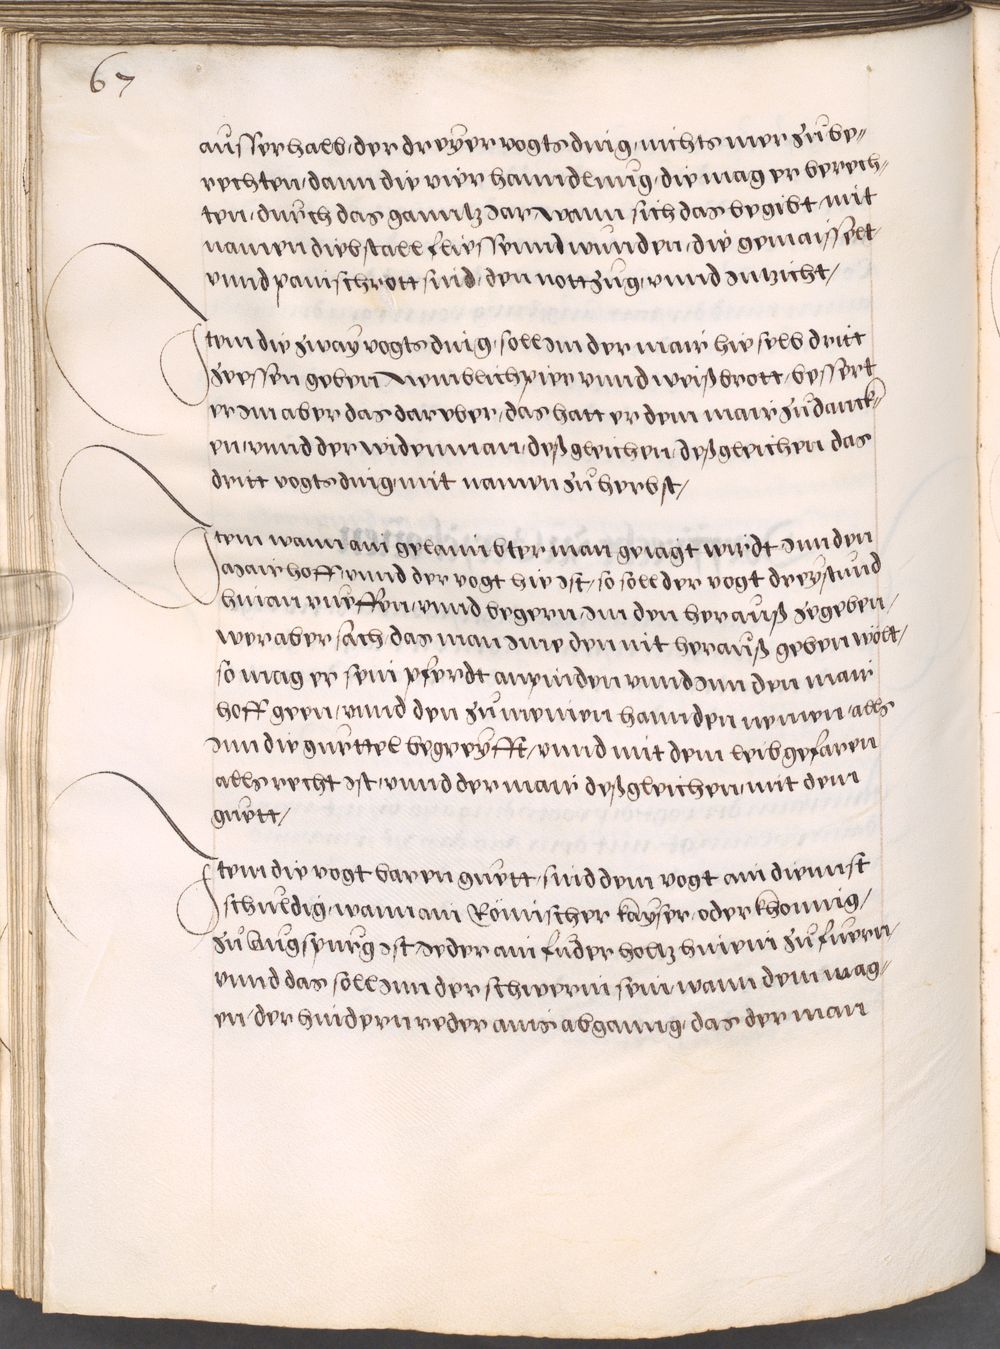 67
ausserhalb der dreyer vogtsding, nichts mer zu be-
rechten, dann die vier hanndlung, die mag er berech-
ten, durch das ganntz Jar, wann sich das begibt, mit
namen diebstall fliessennd wunden, die gemaisselt
vnnd panischrott sind, den nottzug, vnnd Inzicht,
Item die zway vogtsding, soll Im der mair hie selb dritt
zeessen geben Nemblich pier vnnd weißbrott, bessert
er Im aber das darvber, das hatt er dem mair zu danck-
en, vnnd der widenman, deßgleichen, deßgleichen das
dritt vogtsding, mit namen zu herbst,
Item wann ain gelaimbter man geiagt wirdt Inn den
Mairhoff, vnnd der vogt hie Ist, so soll der vogt dreystund
hinan rueffen, vnnd begern Im den herauß zegeben,
wer aber sach, das man Ime den nit herauß geben wölt,
so mag er sein pferdt anpinden vnnd Inn den mair
hoff geen, vnnd den zu meinen hannden nemen, alls
Inn die gurttel begreyfft, vnnd mit dem leib gefaren
alls recht Ist, vnnd der mair deßgleichen, mit dem
guett,
Item die vogt baren guett, sind dem vogt ain diennst
schuldig, wann ain Römischer kayser, oder khonnig,
zu Augspurg Ist, Jeder ain fuder holtz hinein zu fuern,
vnnd das soll Inn der schwerin sein wann dem wag-
en, der hindern reder ains abganng, das der man